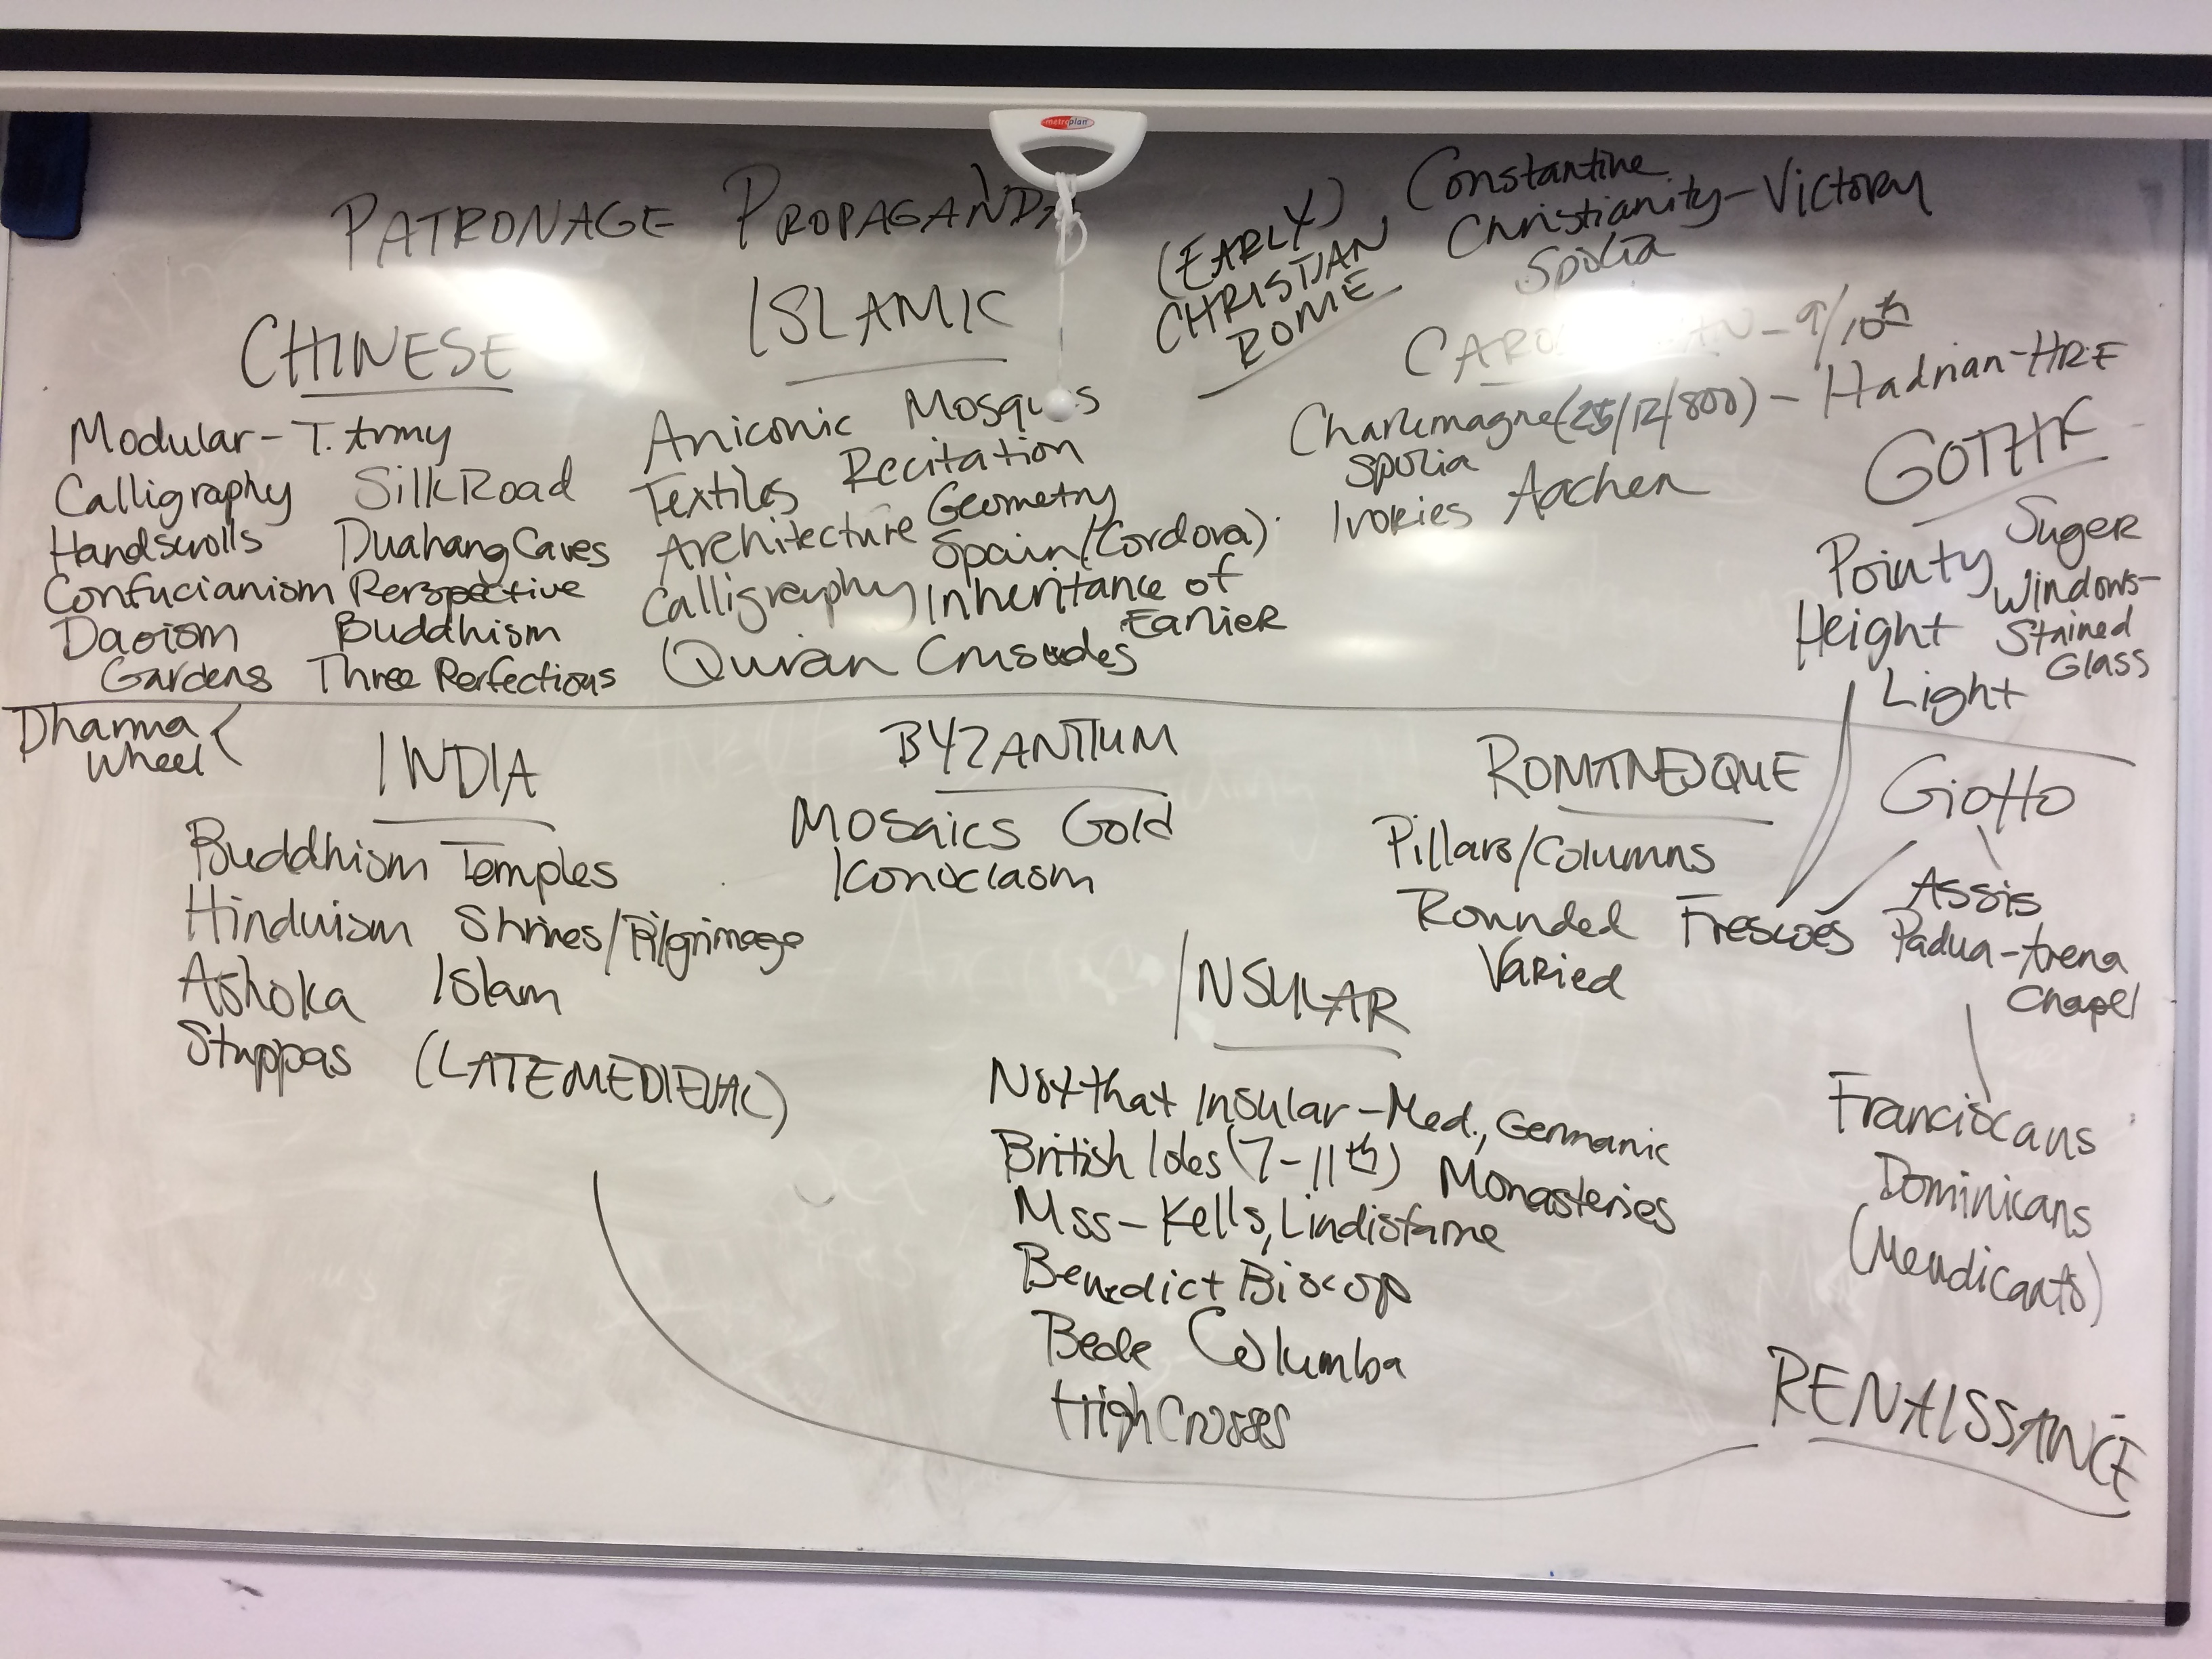 metroplan
PATRONAGE PROPAGANDA
CHINESE
Modular - T. Army
Calligraphy Silk Road
Handscrolls Duahang Caves
Confucianism Perspective
Daoism Buddhism
Gardens Three Perfections
ISLAMIC
Aniconic Mosques
Textiles Recitation
Architecture Geometry
Calligraphy Spain (Cordova)
Quran Inheritance of
Earlier
Crusades
(EARLY)
CHRISTIAN
ROME
Constantine
Christianity - Victory
Spolia
9/10th
Charlemagne (25/12/800) - Hadrian - HRE
Spolia
Ivories Aachen
GOTHIC
Pointy Suger
Height Windows -
Stained
Glass
Light
Dharma
Wheel
INDIA
Buddhism Temples
Hinduism Shrines/Pilgrimage
Ashoka Islam
Stuppas (LATE MEDIEVAL)
BYZANTIUM
Mosaics Gold
Iconoclasm
ROMANESQUE
Pillars/Columns
Rounded Frescoes
Varied
Giotto
Assis
Padua - Arena
Chapel
INSULAR
Not that Insular - Med., Germanic
British Isles (7-11th) Monasteries
Mss - Kells, Lindisfarne
Benedict Biscop
Bede Columba
High Crosses
Franciscans
Dominicans
(Mendicants)
RENAISSANCE